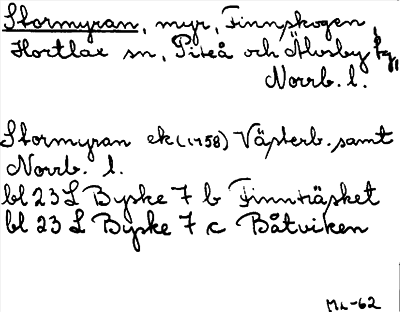 Stormyran, myr, Finnskogen,
Hortlax sn, Piteå och Älvsby kg,
Norrb. l.
Stormyran ek (1958) Västerb. samt
Norrb. l.
bl 23 L Byske 7 b Finnträsket
bl 23 L Byske 7 c Båtviken
ML-62